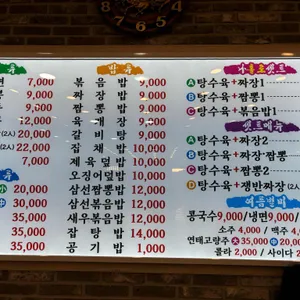 7,000
9,000
9,000
9,000
(2人) 20,000
(2人) 22,000
7,000
小 20,000
中 30,000
35,000
35,000
35,000
밥류
볶음밥 9,000
짜장밥 9,000
짬뽕밥 9,000
육개장 9,000
갈비탕 9,000
잡채밥 10,000
제육덮밥 10,000
오징어덮밥 10,000
삼선짬뽕밥 12,000
삼선볶음밥 12,000
새우볶음밥 12,000
잡탕밥 14,000
공기밥 1,000
A 탕수육+짜장1
B 탕수육+짬뽕1
C 탕수육+볶음밥1
셋트메뉴
A 탕수육+짜장2
B 탕수육+짜장짬뽕
C 탕수육+짬뽕2
D 탕수육+쟁반짜장(2人)
여름별미
콩국수9,000/냉면9,000/
소주 4,000 / 맥주 4
연태고량주 大 35,000 中 20,000
콜라 2,000 / 사이다 2